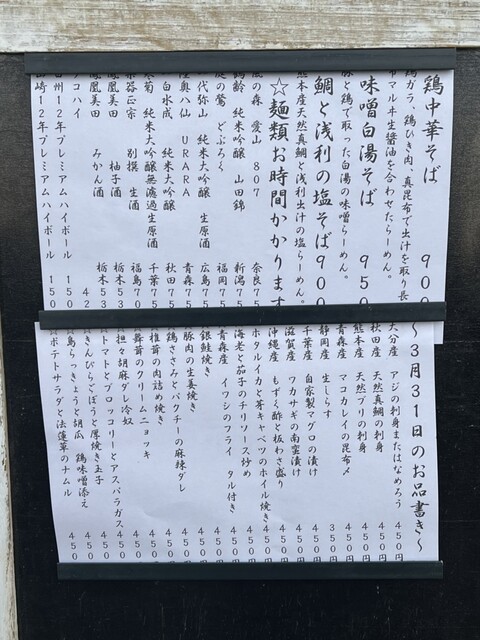 鶏中華そば 900
鶏ガラ、鶏ひき肉、真昆布で出汁を取り長
マルキ生醤油を合わせたらーめん。
味噌白湯そば 950
豚と鶏で取った白湯の味噌らーめん。
鯛と浅利の塩そば 900
熊本産天然真鯛と浅利出汁の塩らーめん。
☆麺類お時間かかります
風の森 愛山 807 奈良75
鶴齢 純米吟醸 山田錦 新潟75
庭の鶯 どぶろく 福岡75
代弥山 純米大吟醸 生原酒 広島75
陸奥八仙 URARA 青森75
白水成 純米大吟醸 秋田75
寒菊 純米大吟醸無濾過生原酒 千葉75
楽器正宗 別撰 生酒 福島70
鳳凰美田 柚子酒 栃木53
鳳凰美田 みかん酒 栃木53
コハイ 42
州12年プレミアムハイボール 150
崎12年プレミアムハイボール 150
～3月31日のお品書き～
大分産 アジの刺身またはなめろう 450円
秋田産 天然真鯛の刺身 450円
熊本産 天然ブリの刺身 450円
青森産 マコカレイの昆布〆 450円
静岡産 生しらす 350円
千葉産 自家製マグロの漬け 450円
滋賀産 ワカサギの南蛮漬け 450円
沖縄産 もずく酢と板わさ盛り 450円
ホタルイカと芽キャベツのホイル焼き 450円
海老と茄子のチリソース炒め 450円
青森産 イワシのフライ タル付き 450円
銀鮭焼き 450円
豚肉の生姜焼き 450円
鶏ささみとパクチーの麻辣ダレ 450円
椎茸の肉詰め焼き 450円
舞茸のクリームニョッキ 450
☆担々胡麻ダレ冷奴 450
☆トマトとブロッコリーとアスパラガス 450
☆きんぴらごぼうと厚焼き玉子 450
☆島らっきょうと胡瓜 鶏味噌添え 450
☆ポテトサラダと法蓮草のナムル 450